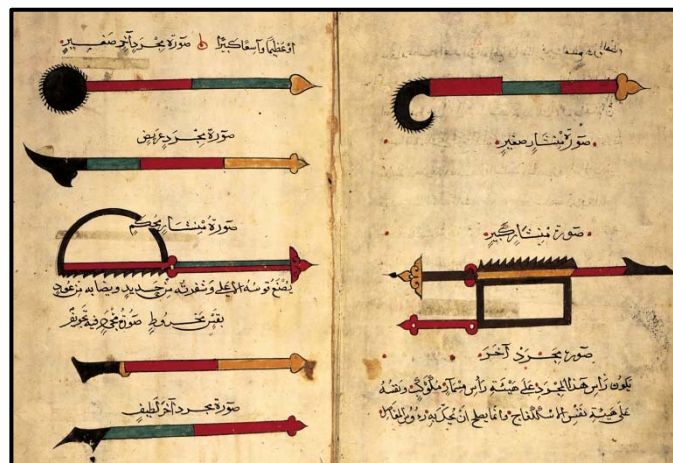 صورة منشار صغير
صورة منشار كبير
صورة مجرد آخر
يكون رأس هذا المجرد على هيئة رأس مسمار مكوكب ونقشه
على هيئة نقش الاسكلفاج وانما يصلح ان يحك به رؤوس المفاصل
او عظيما واسعا كبيرا صورة مجرد آخر صغير
صورة مجرد عريض
صورة منشار محكم
يصنع قوسه الاعلى وشفرته من حديد ونصابه من عود
بقس مخروط صورة مجرد فيه تجويف
صورة مجرد آخر لطيف